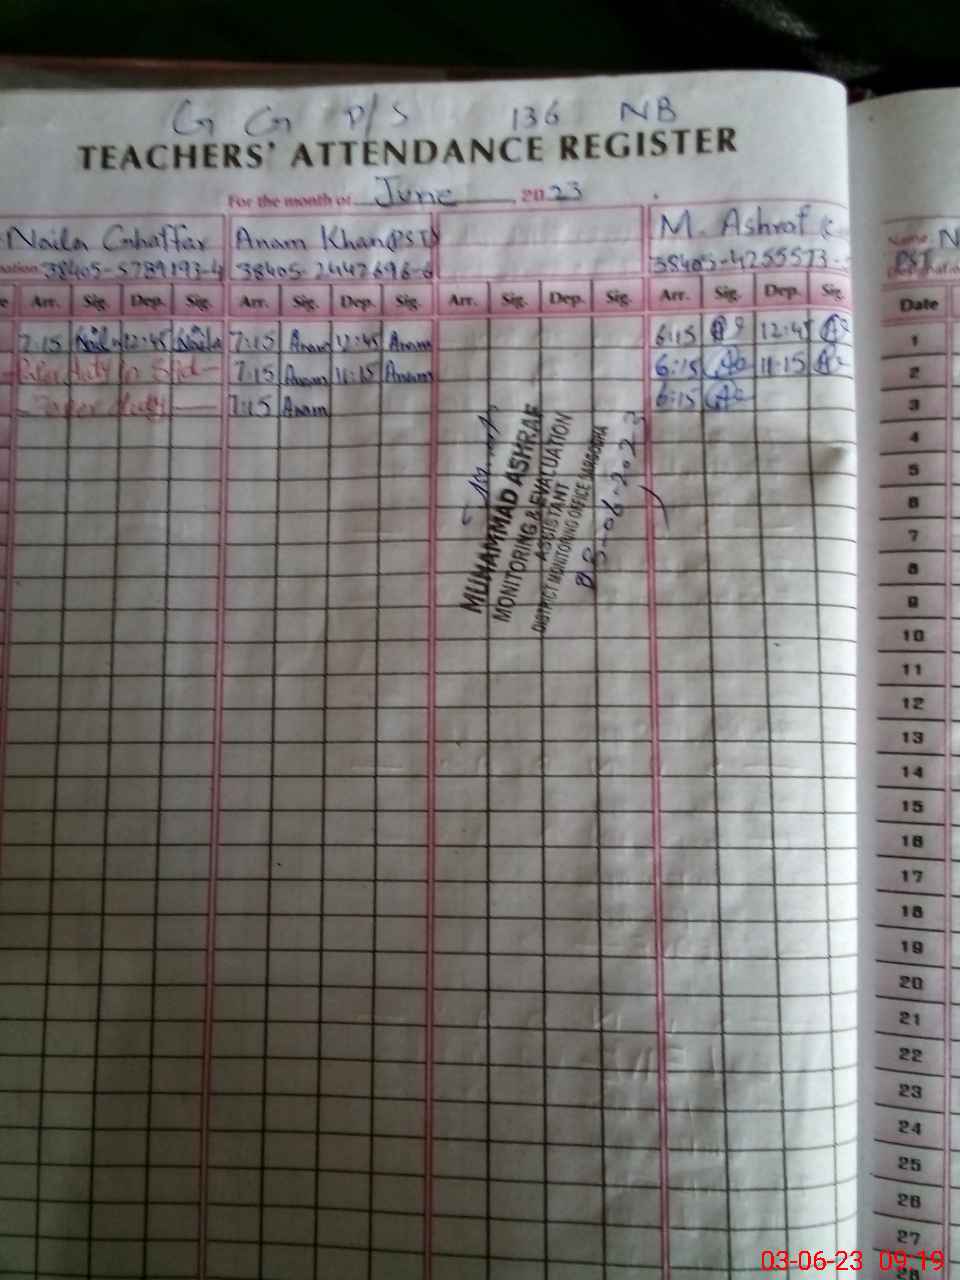 G G P/S 136 NB
TEACHERS' ATTENDANCE REGISTER
For the month of June, 2023
Naila Ghaffar Anam Khan (PST) M. Ashraf Name N
38405-5789193-4 38405-2447696-6 38405-4255573- PST
Arr. Sig. Dep. Sig. Arr. Sig. Dep. Sig. Arr. Sig. Dep. Sig. Arr. Sig. Dep. Sig. Date
7:15 Naila 12:45 Naila 7:15 Anam 12:45 Anam 6:15 12:45 1
duty in 7:15 Anam 11:15 Anam 6:15 11:15 2
Paper duty 7:15 Anam 6:15 3
MUHAMMAD ASHRAF
MONITORING & EVALUATION
ASSISTANT
DISTRICT MONITORING OFFICE SARGODHA
03-06-2023
4
5
6
7
8
9
10
11
12
13
14
15
16
17
18
19
20
21
22
23
24
25
26
27
28
03-06-23 09:19